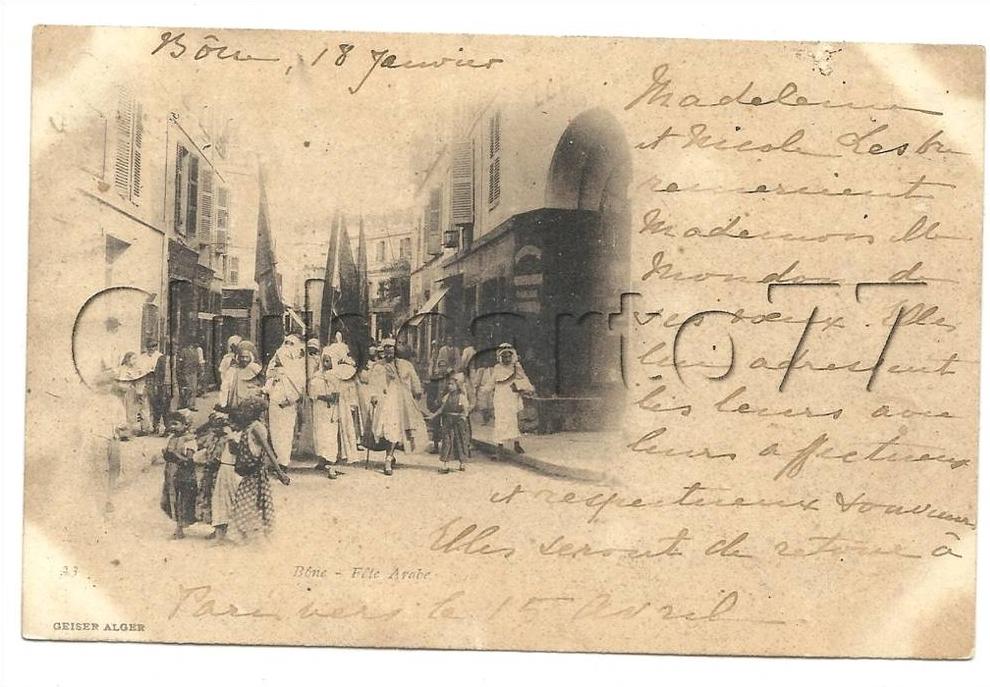 Bône, 18 Janvier
Madeleine
et Nicole
remercient
Mademoiselle
de
ses vœux. Elles
leur adressent
les leurs avec
leurs affectueux
et respectueux souvenirs
Elles seront de retour à
Paris vers le 15 Avril
cpacarto77
23
Bône - Fête Arabe
GEISER ALGER